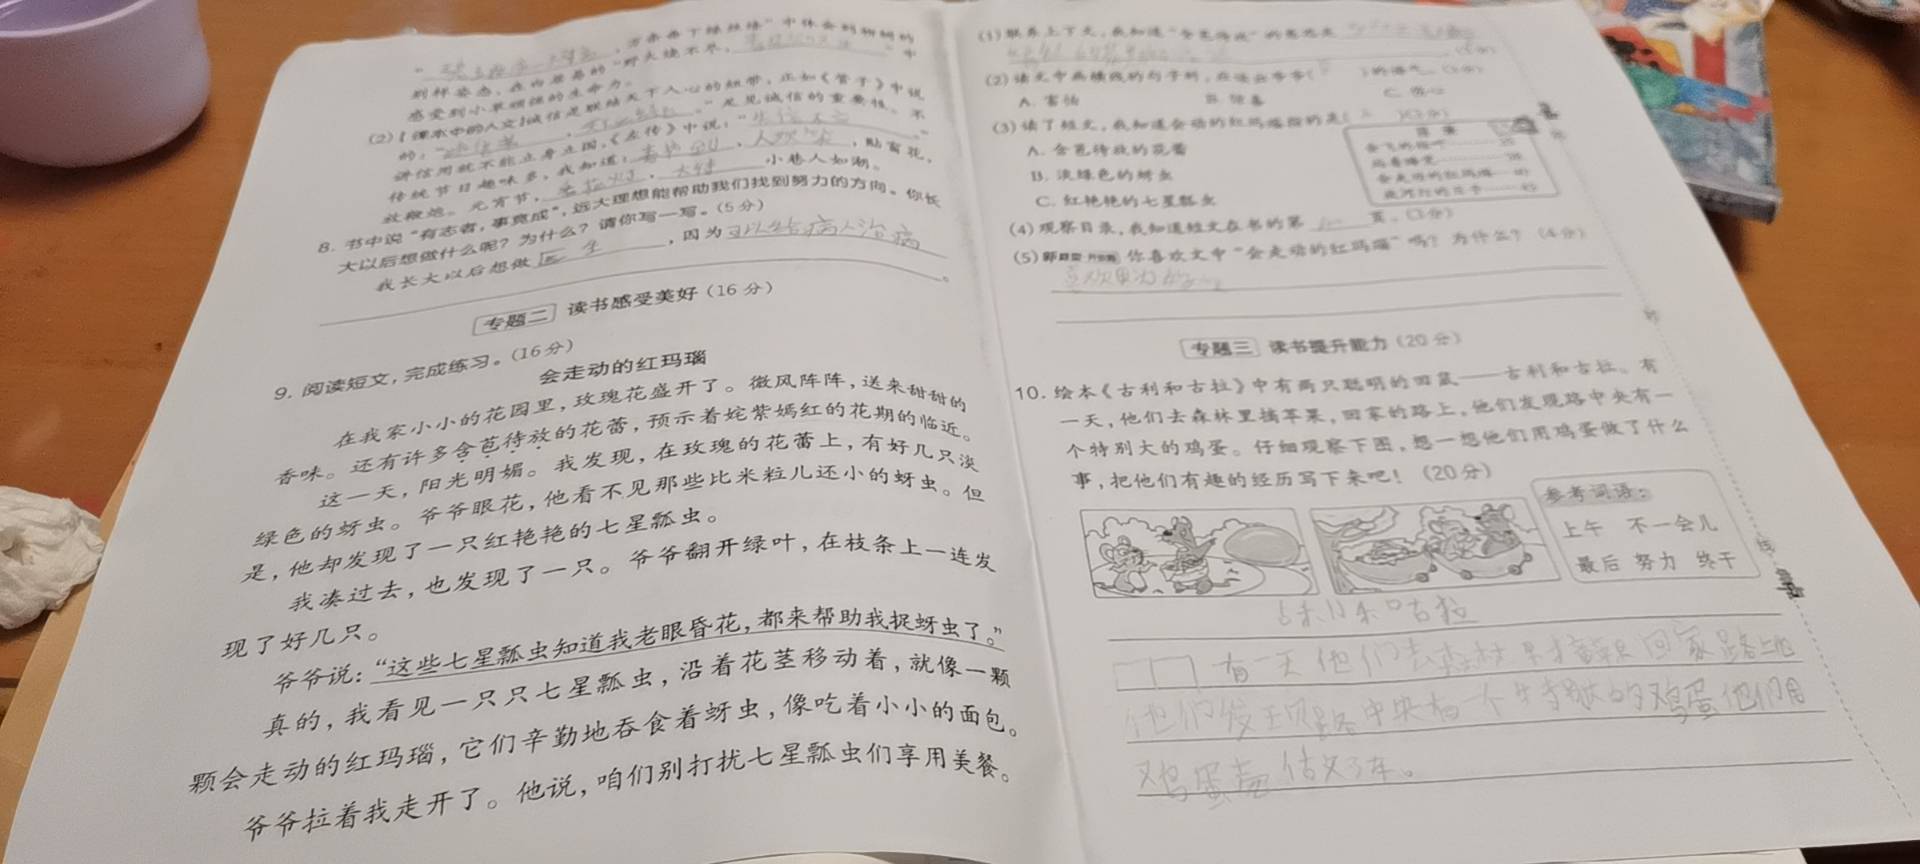 ，万条垂下绿丝绦”中体会到柳树的
别样姿态，在白居易的“野火烧不尽，
”中
感受到小草顽强的生命力。
(2)【课本中的人文】诚信是联结天下人心的纽带，正如《管子》中说
的：“
，
。”足见诚信的重要性。不
讲信用就不能立身立国，《左传》中说：“
。”
传统节日趣味多，我知道：春节到，人欢笑，贴窗花，
放鞭炮。元宵节，
，
小巷人如潮。
8. 书中说“有志者，事竟成”，远大理想能帮助我们找到努力的方向。你长
大以后想做什么呢？为什么？请你写一写。(5分)
我长大以后想做医生，因为可以给病人治病
。
专题二 读书感受美好(16分)
9. 阅读短文，完成练习。(16分)
会走动的红玛瑙
在我家小小的花园里，玫瑰花盛开了。微风阵阵，送来甜甜的
香味。还有许多含苞待放的花蕾，预示着姹紫嫣红的花期的临近。
这一天，阳光明媚。我发现，在玫瑰的花蕾上，有好几只淡
绿色的蚜虫。爷爷眼花，他看不见那些比米粒儿还小的蚜虫。但
是，他却发现了一只红艳艳的七星瓢虫。
我凑过去，也发现了一只。爷爷翻开绿叶，在枝条上一连发
现了好几只。
爷爷说：“这些七星瓢虫知道我老眼昏花，都来帮助我捉蚜虫了。”
真的，我看见一只只七星瓢虫，沿着花茎移动着，就像一颗
颗会走动的红玛瑙，它们辛勤地吞食着蚜虫，像吃着小小的面包。
爷爷拉着我走开了。他说，咱们别打扰七星瓢虫们享用美餐。
(1)联系上下文，我知道“含苞待放”的意思是
(2)读文中画横线的句子时，应读出爷爷( )的语气。
A. 害怕
B. 惊喜
C. 伤心
(3)读了短文，我知道会动的红玛瑙指的是( )
A. 含苞待放的花蕾
B. 淡绿色的蚜虫
C. 红艳艳的七星瓢虫
目 录
(4)观察目录，我知道短文在书的第
页。(3分)
(5) 你喜欢文中“会走动的红玛瑙”吗？为什么？(4分)
专题三 读书提升能力(20分)
10. 绘本《古利和古拉》中有两只聪明的田鼠——古利和古拉。有
一天，他们去森林里摘苹果，回家的路上，他们发现路中央有一
个特别大的鸡蛋。仔细观察下图，想一想他们用鸡蛋做了什么
事，把他们有趣的经历写下来吧！(20分)
参考词语：
上午 不一会儿
最后 努力 终于
有一天他们去
回家路上他
他们发现路中央有一个特别大的鸡蛋他们用
鸡蛋壳做了车。
线